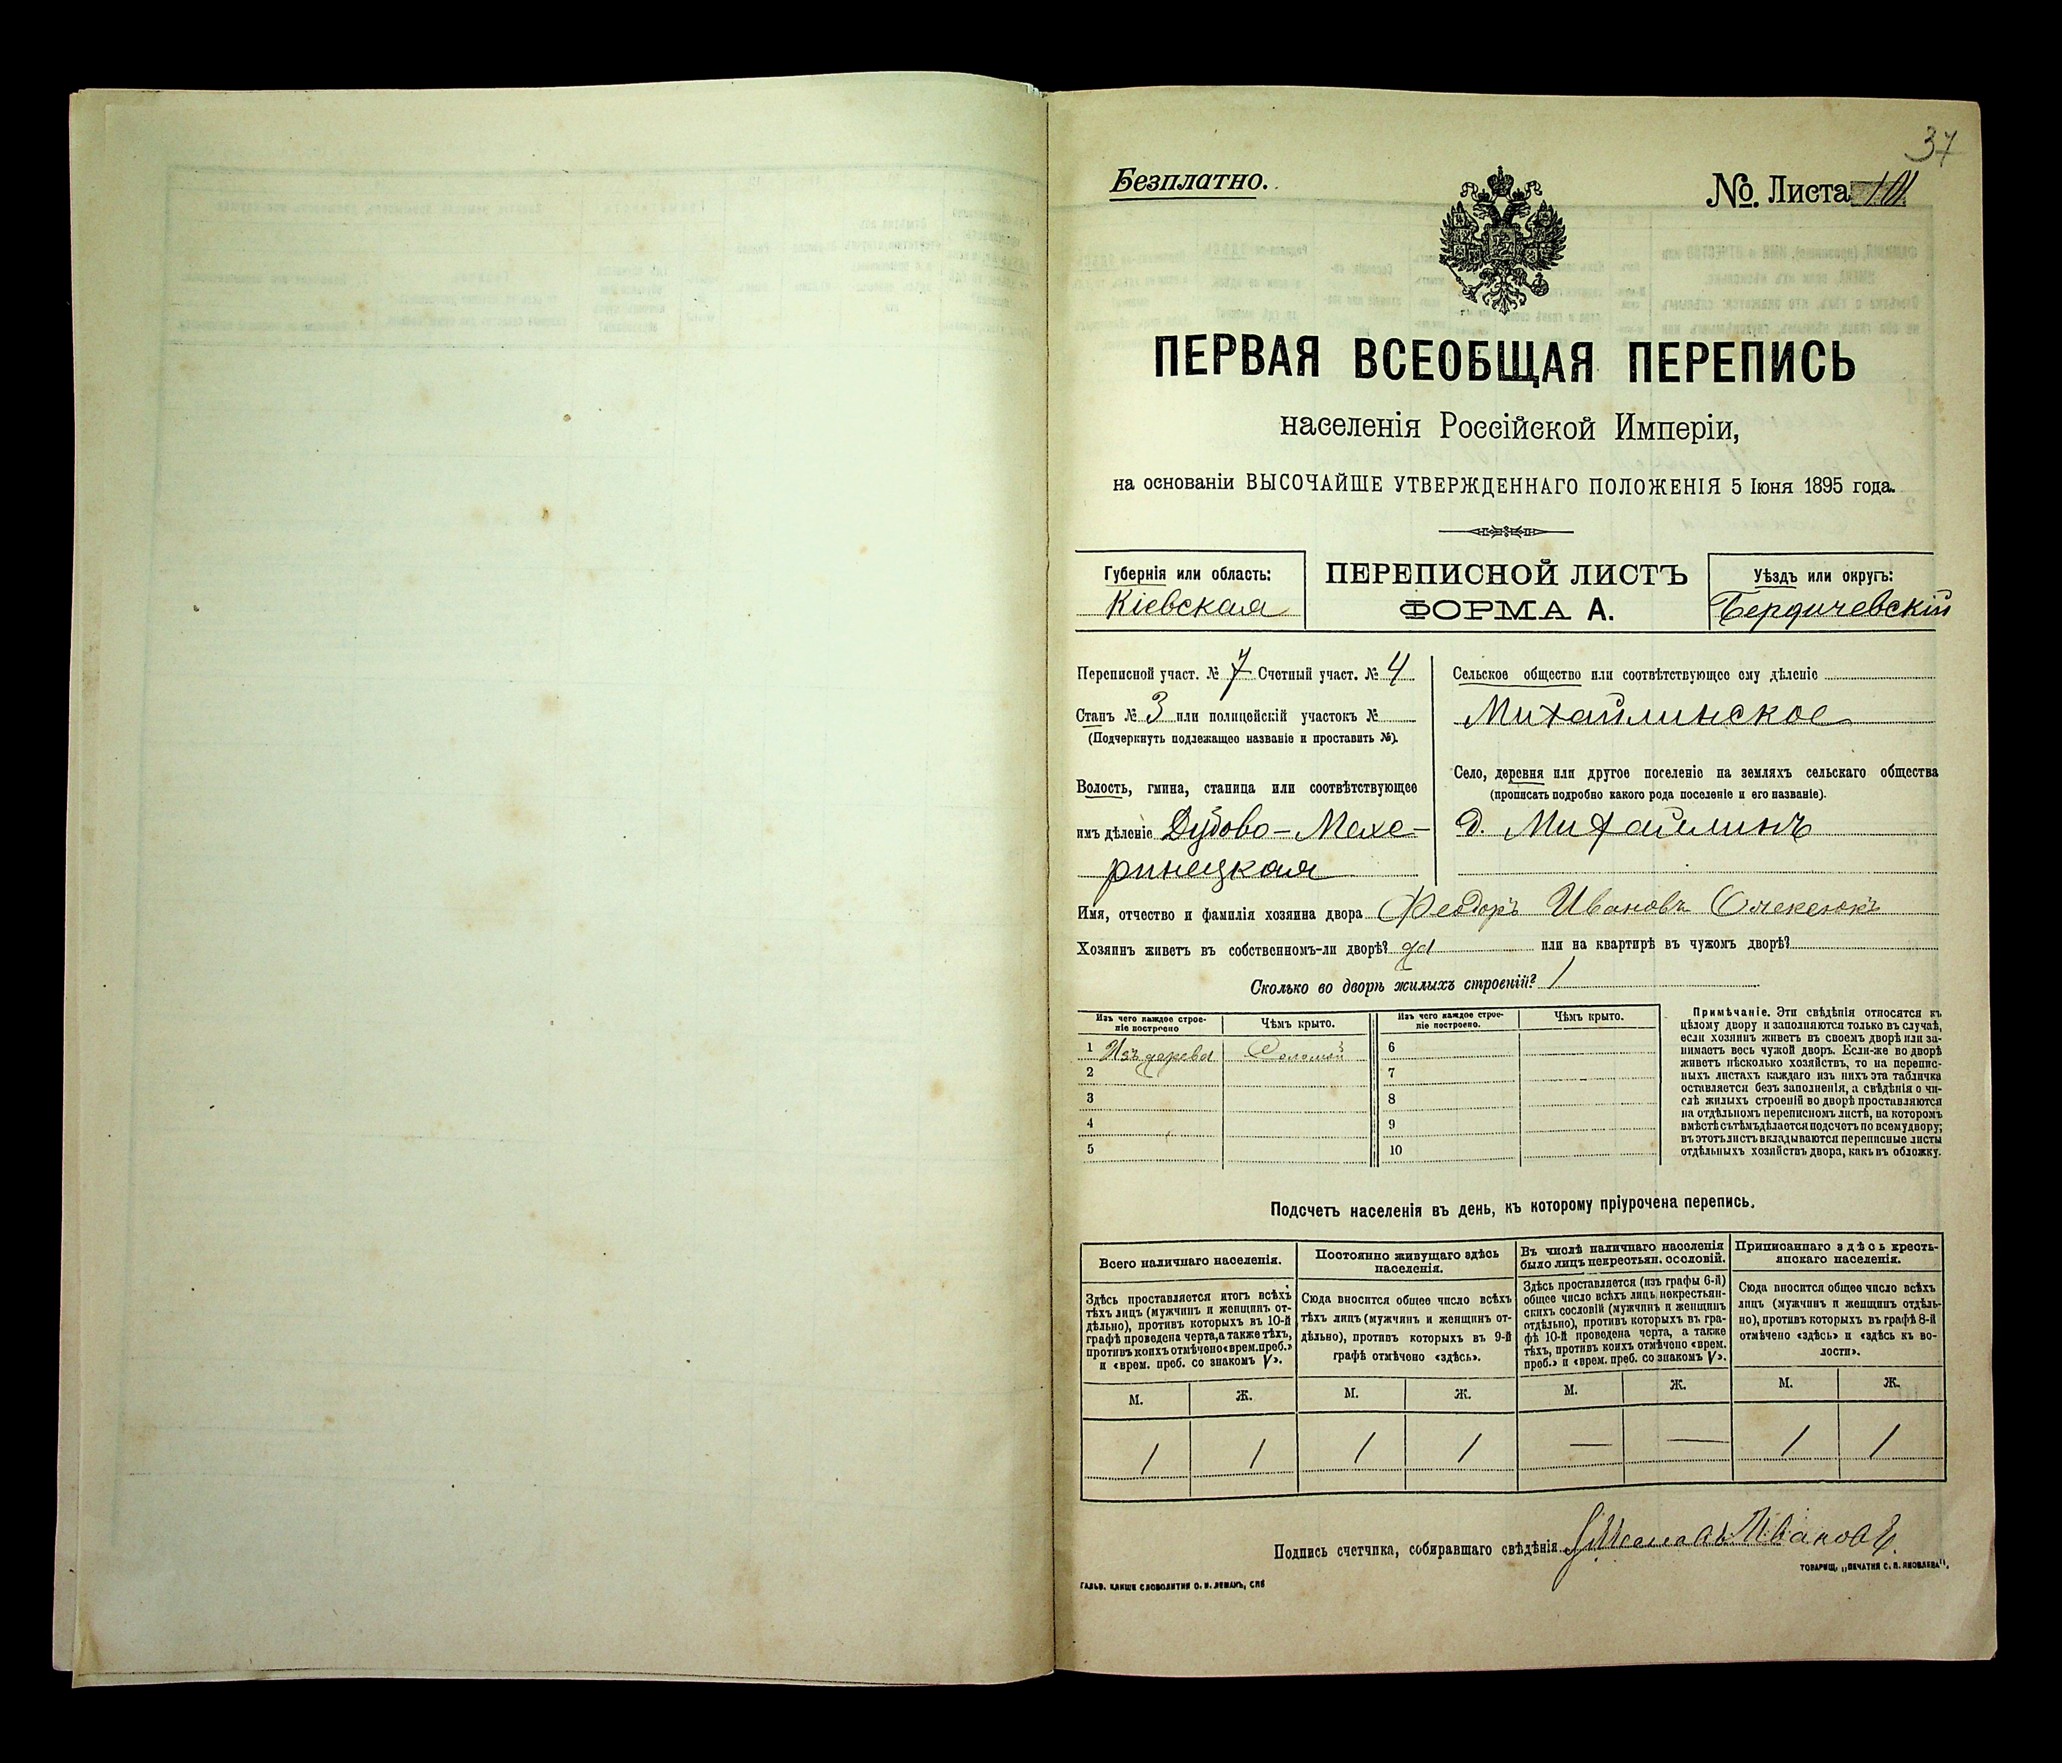 37
Безплатно.
№ Листа 101
ПЕРВАЯ ВСЕОБЩАЯ ПЕРЕПИСЬ
населенія Россійской Имперіи,
на основаніи ВЫСОЧАЙШЕ УТВЕРЖДЕННАГО ПОЛОЖЕНІЯ 5 Іюня 1895 года.
Губернія или область:
Кіевская
ПЕРЕПИСНОЙ ЛИСТЪ
ФОРМА А.
Уѣздъ или округъ:
Бердичевскій
Переписной участ. № 7 Счетный участ. № 4
Станъ № 3 или полицейскій участокъ №
(Подчеркнуть подлежащее названіе и проставить №).
Волость, гмина, станица или соотвѣтствующее
имъ дѣленіе Дубово-Махе-
ринецкая
Сельское общество или соотвѣтствующее ему дѣленіе
Михайлинское
Село, деревня или другое поселеніе на земляхъ сельскаго общества
(прописать подробно какого рода поселеніе и его названіе).
д. Михайлинъ
Имя, отчество и фамилія хозяина двора Феодоръ Ивановъ Олексюкъ
Хозяинъ живетъ въ собственномъ-ли дворѣ? да или на квартирѣ въ чужомъ дворѣ?
Сколько во дворѣ жилыхъ строеній? 1
Изъ чего каждое строе-
ніе построено
Чѣмъ крыто.
Изъ чего каждое строе-
ніе построено.
Чѣмъ крыто.
1 Изъ дерева Соломой 6
2 7
3 8
4 9
5 10
Примѣчаніе. Эти свѣдѣнія относятся къ
цѣлому двору и заполняются только въ случаѣ,
если хозяинъ живетъ въ своемъ дворѣ или за-
нимаетъ весь чужой дворъ. Если-же во дворѣ
живетъ нѣсколько хозяйствъ, то на перепис-
ныхъ листахъ каждаго изъ нихъ эта табличка
оставляется безъ заполненія, а свѣдѣнія о чи-
слѣ жилыхъ строеній во дворѣ проставляются
на отдѣльномъ переписномъ листѣ, на которомъ
вмѣстѣ съ тѣмъ дѣлается подсчетъ по всему двору;
въ этотъ листъ вкладываются переписные листы
отдѣльныхъ хозяйствъ двора, какъ въ обложку.
Подсчетъ населенія въ день, къ которому пріурочена перепись.
Всего наличнаго населенія.
Здѣсь проставляется итогъ всѣхъ
тѣхъ лицъ (мужчинъ и женщинъ от-
дѣльно), противъ которыхъ въ 10-й
графѣ проведена черта, а также тѣхъ,
противъ коихъ отмѣчено «врем. преб.»
и «врем. преб. со знакомъ V».
Постоянно живущаго здѣсь
населенія.
Сюда вносится общее число всѣхъ
тѣхъ лицъ (мужчинъ и женщинъ от-
дѣльно), противъ которыхъ въ 9-й
графѣ отмѣчено «здѣсь».
Въ числѣ наличнаго населенія
было лицъ некрестьян. сословій.
Здѣсь проставляется (изъ графы 6-й)
общее число всѣхъ лицъ некрестьян-
скихъ сословій (мужчинъ и женщинъ
отдѣльно), противъ которыхъ въ гра-
фѣ 10-й проведена черта, а также
тѣхъ, противъ коихъ отмѣчено «врем.
преб.» и «врем. преб. со знакомъ V».
Приписаннаго здѣсь кресть-
янскаго населенія.
Сюда вносится общее число всѣхъ
лицъ (мужчинъ и женщинъ отдѣль-
но), противъ которыхъ въ графѣ 8-й
отмѣчено «здѣсь» и «здѣсь къ во-
лости».
М. Ж. М. Ж. М. Ж. М. Ж.
1 1 1 1 — — 1 1
Подпись счетчика, собиравшаго свѣдѣнія
ТОВАРИЩ. „ПЕЧАТНЯ С. П. ЯКОВЛЕВА“.
ГАЛЬВ. КЛИШЕ СЛОВОЛИТНИ О. И. ЛЕМАНЪ, СПБ